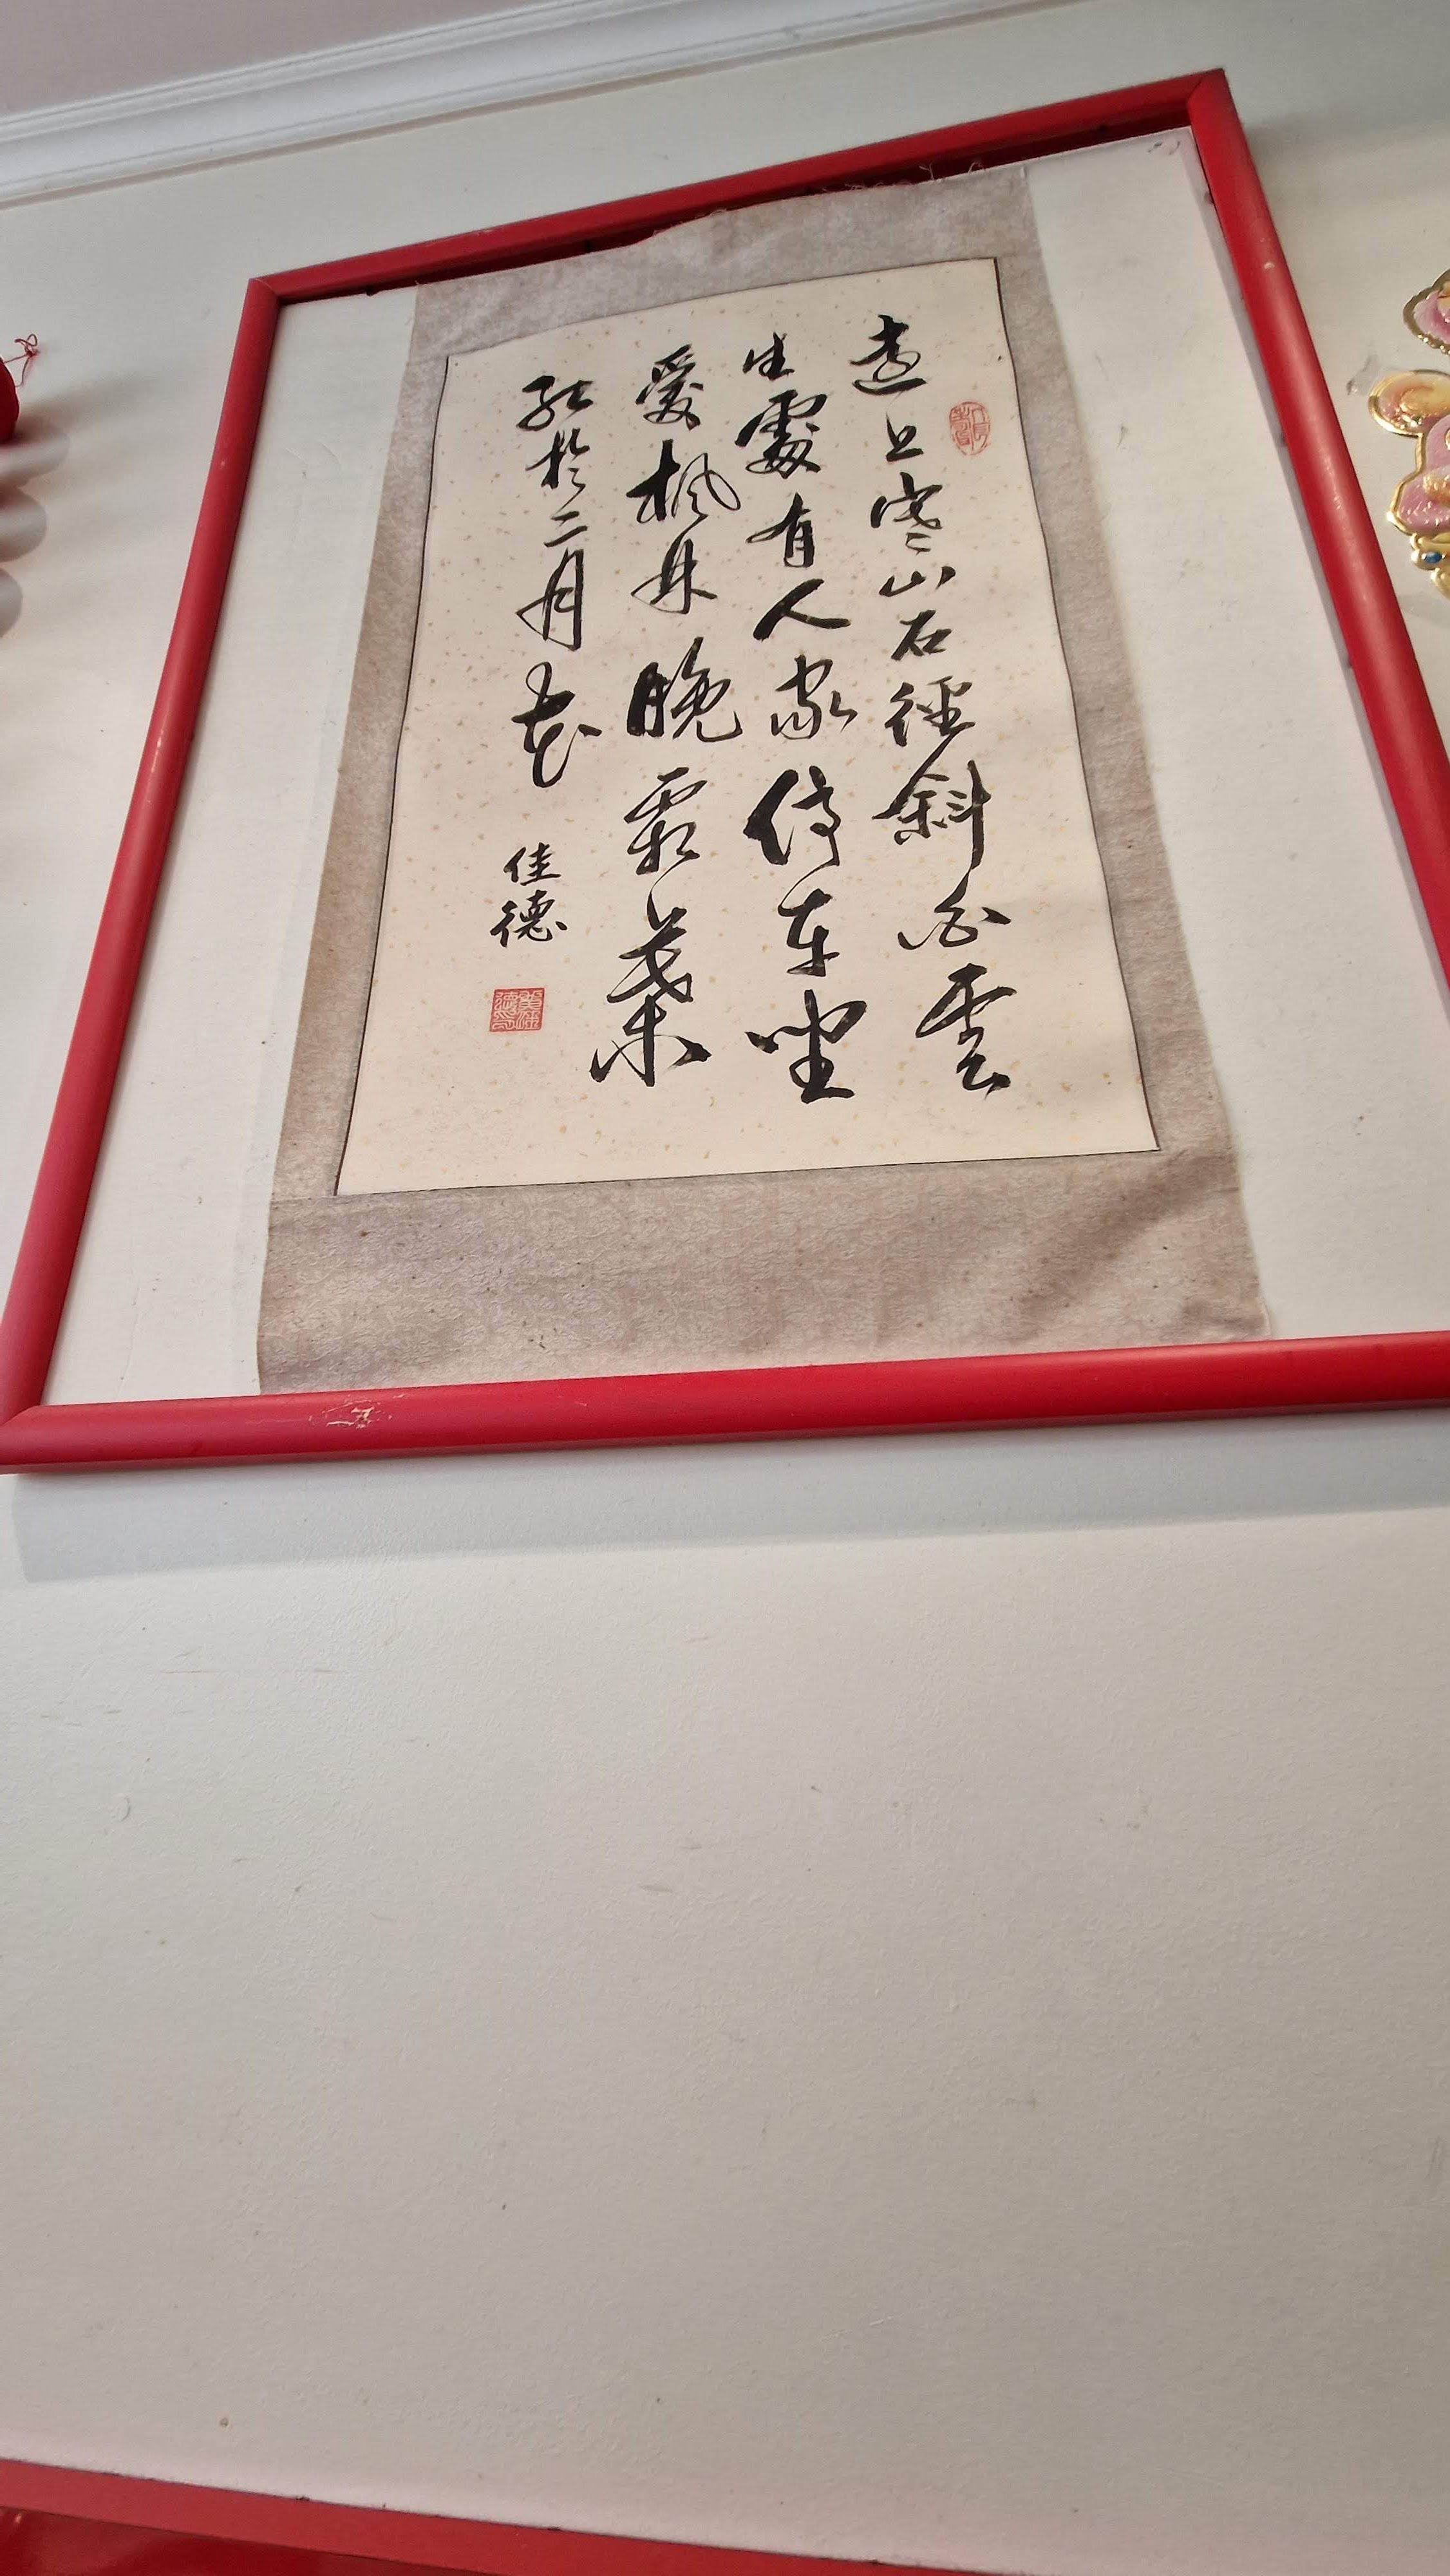 遠上寒山石徑斜白雲
生處有人家停車坐
愛楓林晚霜葉
紅於二月花
佳德